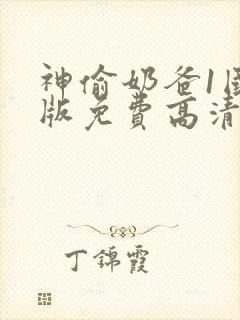 神偷奶爸1国
版免费高清
丁锦霞